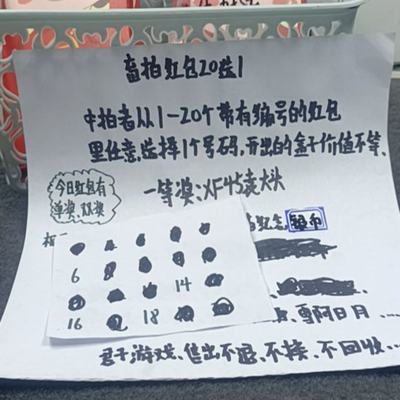 盲拍红包20选1
中拍者从1-20个带有编号的红包
里任意选择1个号码,开出的盒子价值不等.
今日红包有
单奖、双奖
一等奖:XF45袁大头
银币
6
14
16 18
君子游戏、售出不退、不换、不回收...